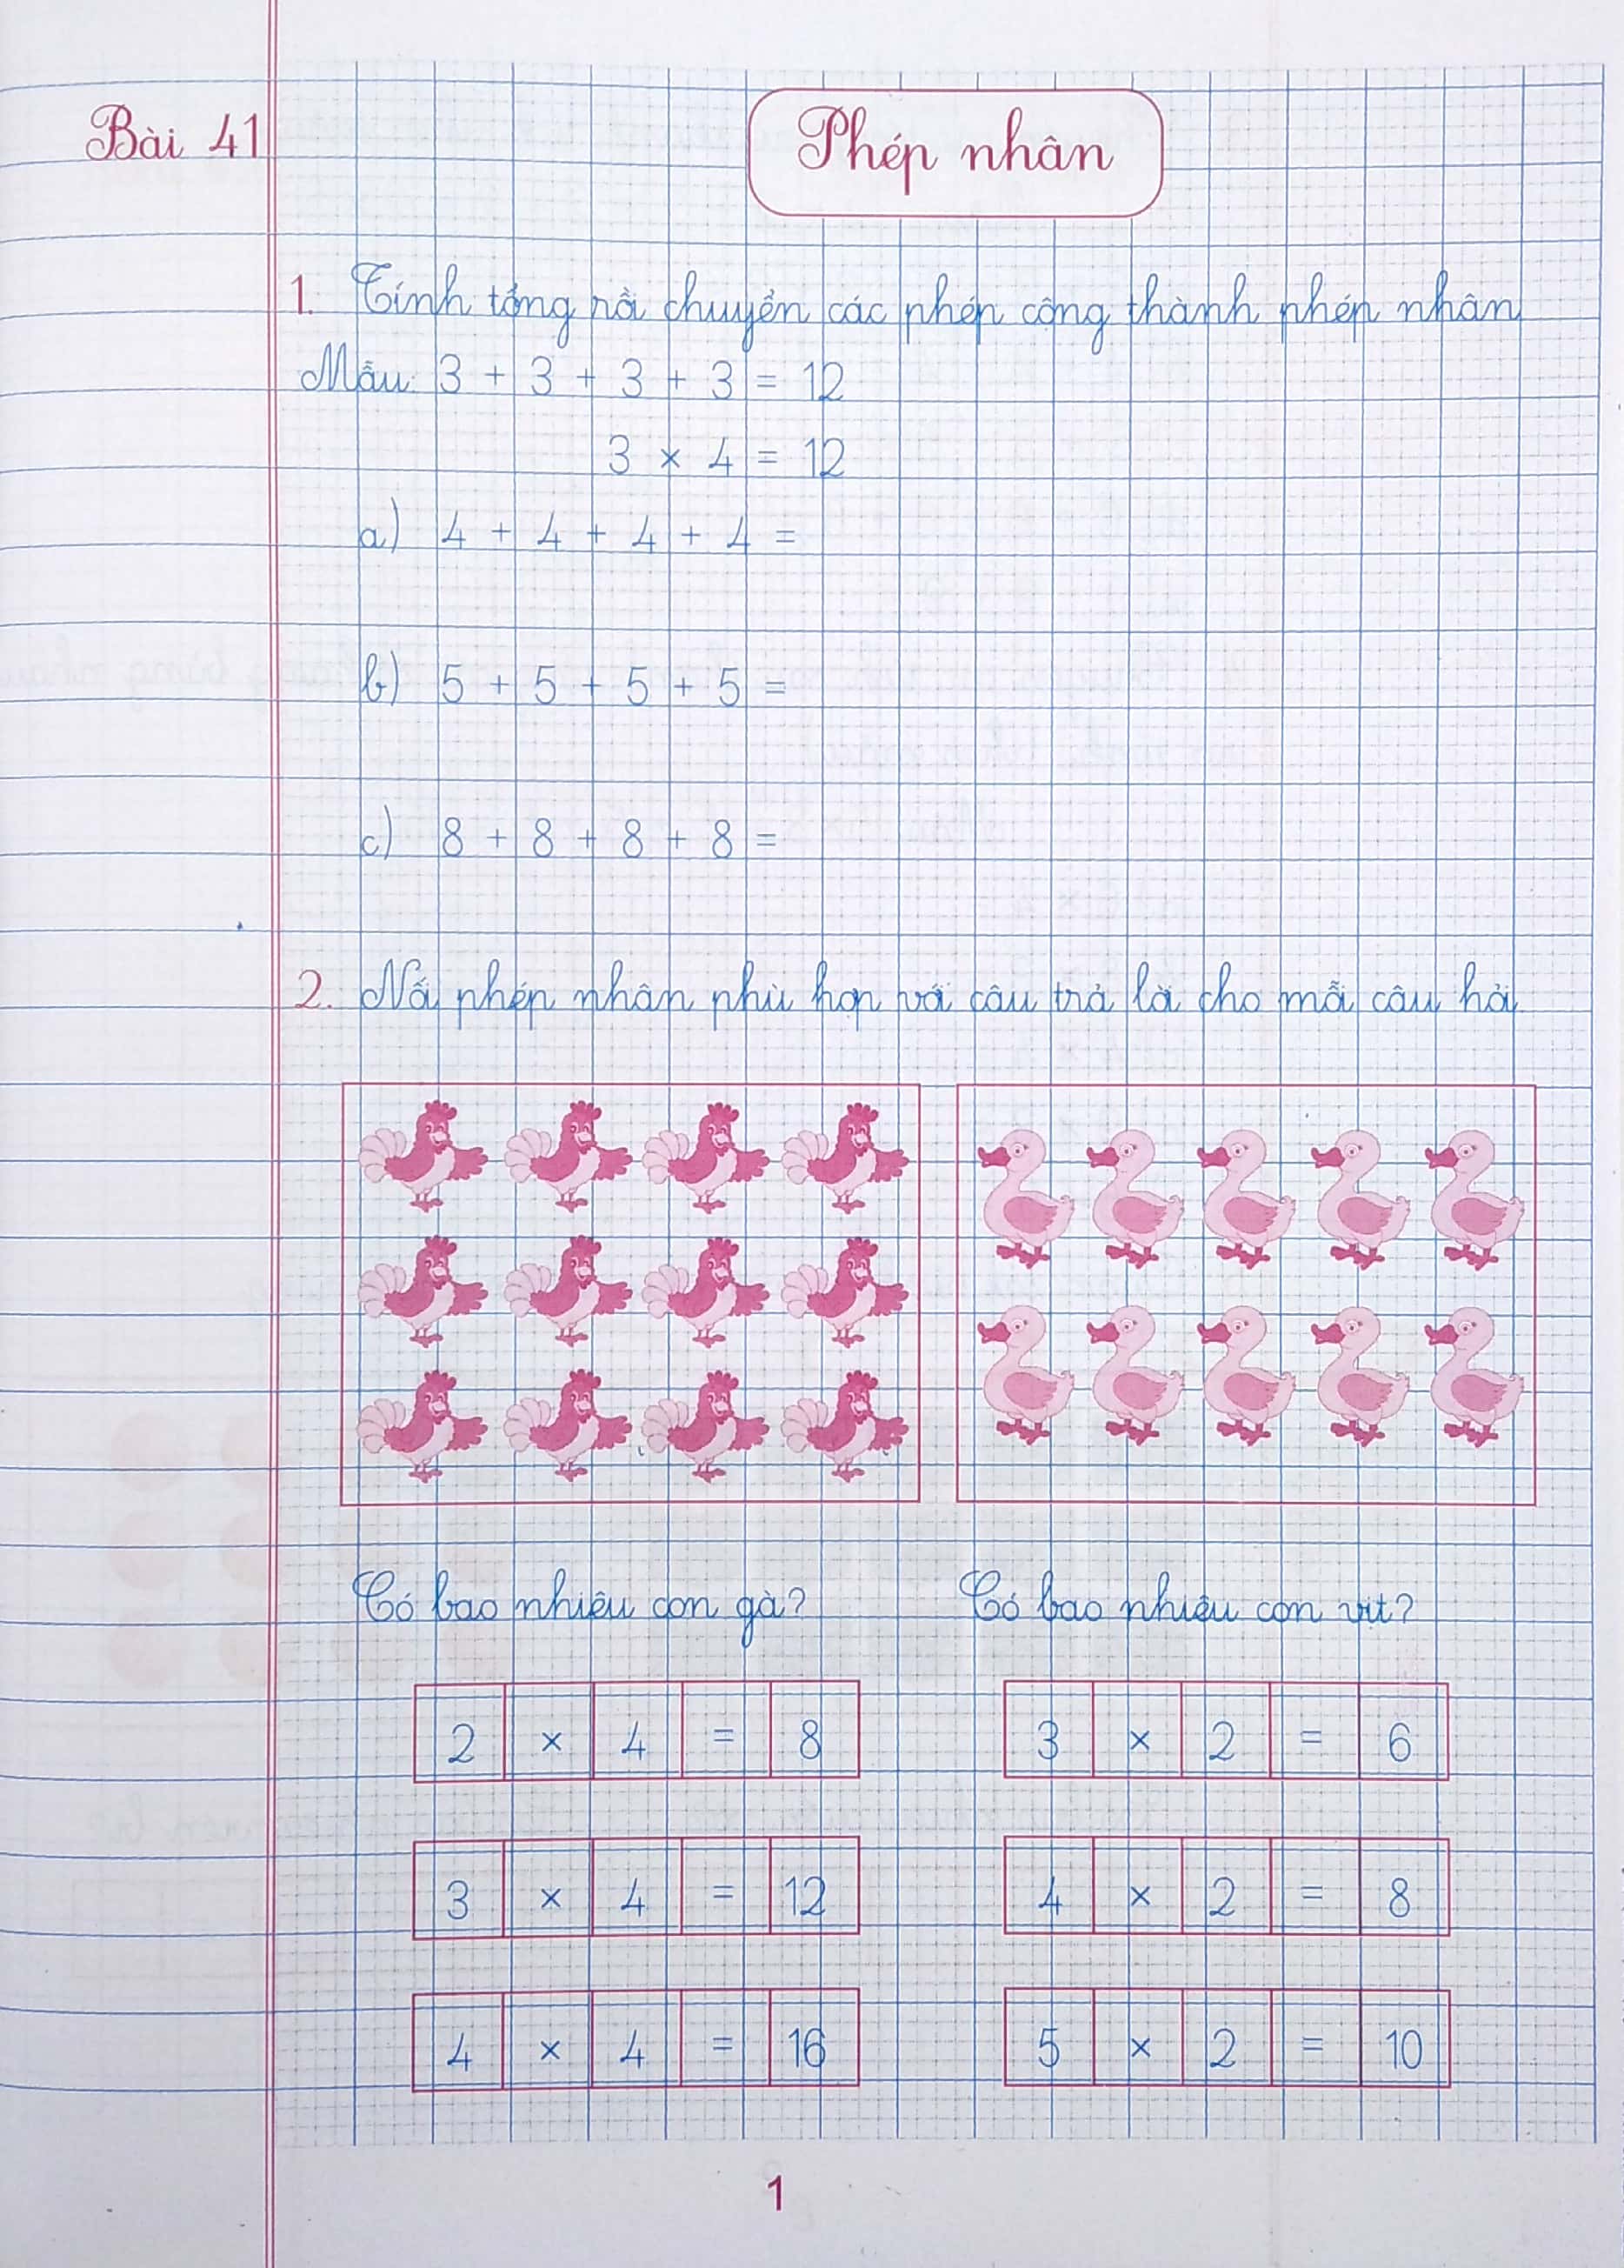 Bài 41
Phép nhân
1. Tính tổng rồi chuyển các phép cộng thành phép nhân
Mẫu: 3 + 3 + 3 + 3 = 12
3 × 4 = 12
a) 4 + 4 + 4 + 4 =
b) 5 + 5 + 5 + 5 =
c) 8 + 8 + 8 + 8 =
2. Nối phép nhân phù hợp với câu trả lời cho mỗi câu hỏi
Có bao nhiêu con gà? Có bao nhiêu con vịt?
2 × 4 = 8 3 × 2 = 6
3 × 4 = 12 4 × 2 = 8
4 × 4 = 16 5 × 2 = 10
1